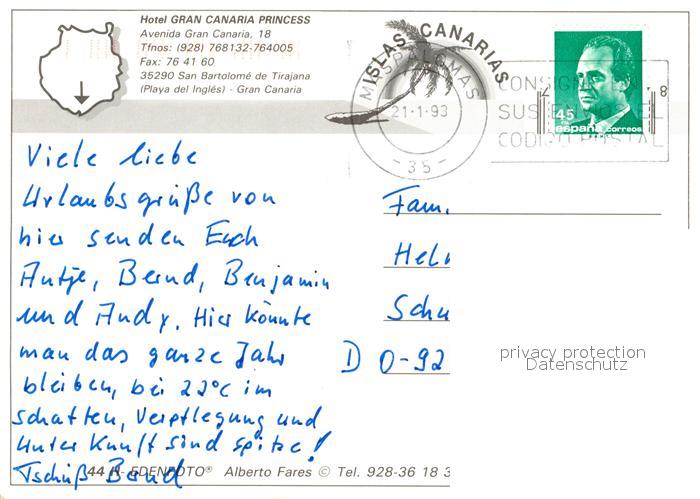 Hotel GRAN CANARIA PRINCESS
Avenida Gran Canaria, 18
Tfnos: (928) 768132-764005
Fax: 76 41 60
35290 San Bartolomé de Tirajana
(Playa del Inglés) - Gran Canaria
ISLAS CANARIAS
MASPALOMAS
21-1-93
-35-
CONSIGNE EN
SUS ENVIOS EL
CODIGO POSTAL
45
españa correos
Viele liebe
Urlaubsgrüße von
hier senden Euch
Antje, Bernd, Benjamin
und Andy. Hier könnte
man das ganze Jahr
bleiben, bei 22°C im
schatten, Verpflegung und
Unterkunft sind spitze!
Tschüß Bernd
Fam.
Helm
Schu
D O-92
privacy protection
Datenschutz
EDENFOTO® Alberto Fares © Tel. 928-36 18 3